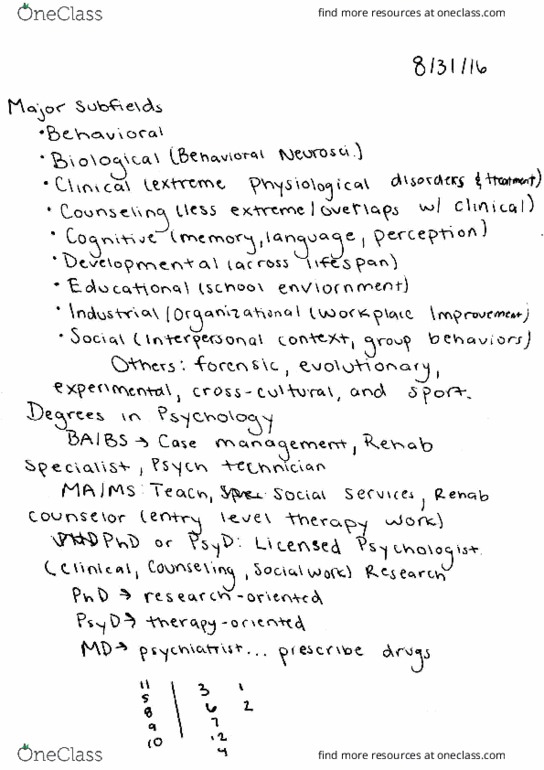 OneClass
find more resources at oneclass.com
8/31/16
Major Subfields
• Behavioral
• Biological (Behavioral Neurosci.)
• Clinical (extreme Physiological disorders & treatment)
• Counseling (less extreme/overlaps w/ clinical)
• Cognitive (memory, language, perception)
• Developmental (across lifespan)
• Educational (school enviornment)
• Industrial/Organizational (workplace Improvement)
• Social (Interpersonal context, group behaviors)
Others: forensic, evolutionary,
experimental, cross-cultural, and sport.
Degrees in Psychology
BA/BS → Case management, Rehab
Specialist, Psych technician
MA/MS: Teach, Social Services, Rehab
counselor (entry level therapy work)
PhD or PsyD: Licensed Psychologist.
(Clinical, Counseling, Social work) Research
PhD → research-oriented
PsyD → therapy-oriented
MD → psychiatrist... prescribe drugs
11 3 1
5 6 2
8 7
9 12
10 4
OneClass
find more resources at oneclass.com